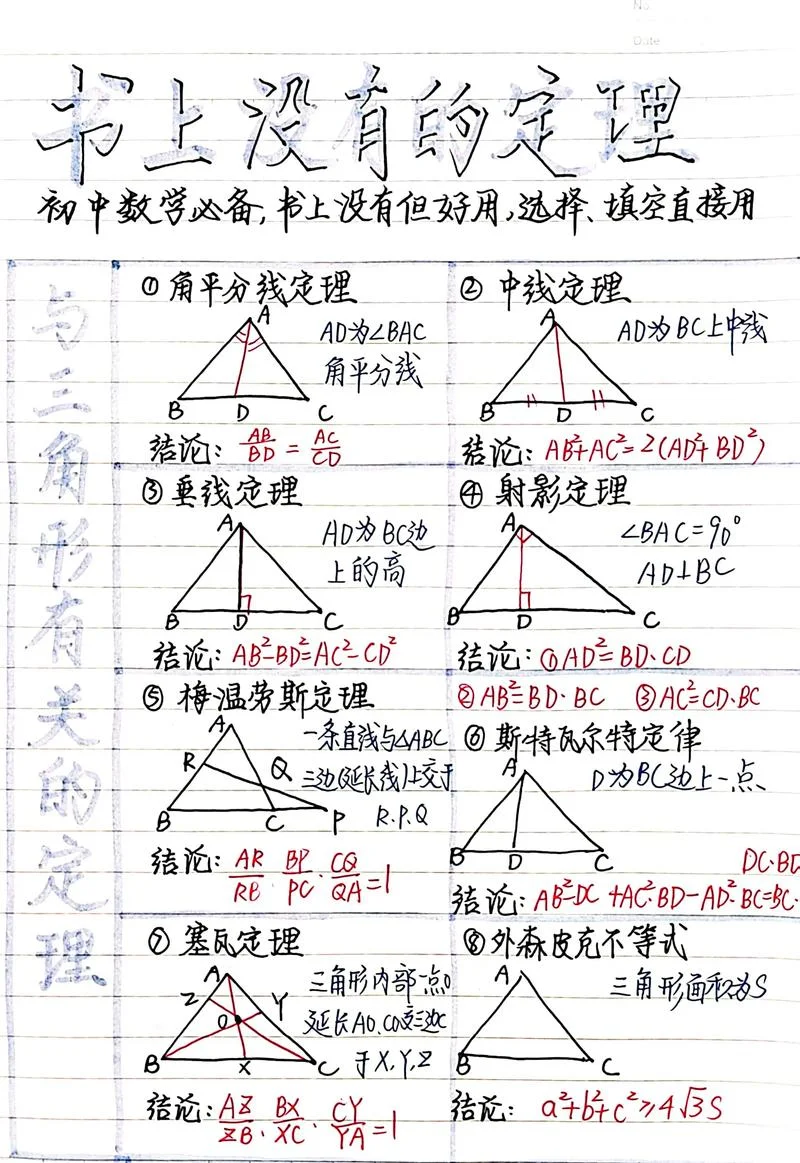 No.
Date
书上没有的定理
初中数学必备,书上没有但好用,选择、填空直接用
与三角形有关的定理
① 角平分线定理
A
AD为∠BAC
角平分线
B D C
结论: AB/BD = AC/CD
② 中线定理
A
AD为BC上中线
B D C
结论: AB²+AC²=2(AD²+BD²)
③ 垂线定理
A
AD为BC边
上的高
B D C
结论: AB²-BD²=AC²-CD²
④ 射影定理
A
∠BAC=90°
AD⊥BC
B D C
结论: ①AD²=BD·CD
②AB²=BD·BC ③AC²=CD·BC
⑤ 梅温劳斯定理
A
R Q
B C P
一条直线与△ABC
三边(延长线)上交于
R.P.Q
结论: AR/RB BP/PC · CQ/QA=1
⑥ 斯特瓦尔特定律
A
D为BC边上一点
B D C
DC·BD
结论: AB²-DC +AC²·BD-AD²·BC=BC·
⑦ 塞瓦定理
A
Z O Y
B X C
三角形内部一点O
延长AO、CO交三边C
于X,Y,Z
结论: AZ/ZB · BX/XC · CY/YA=1
⑧ 外森皮克不等式
A
三角形面积为S
B C
结论: a²+b²+c²≥4√3S